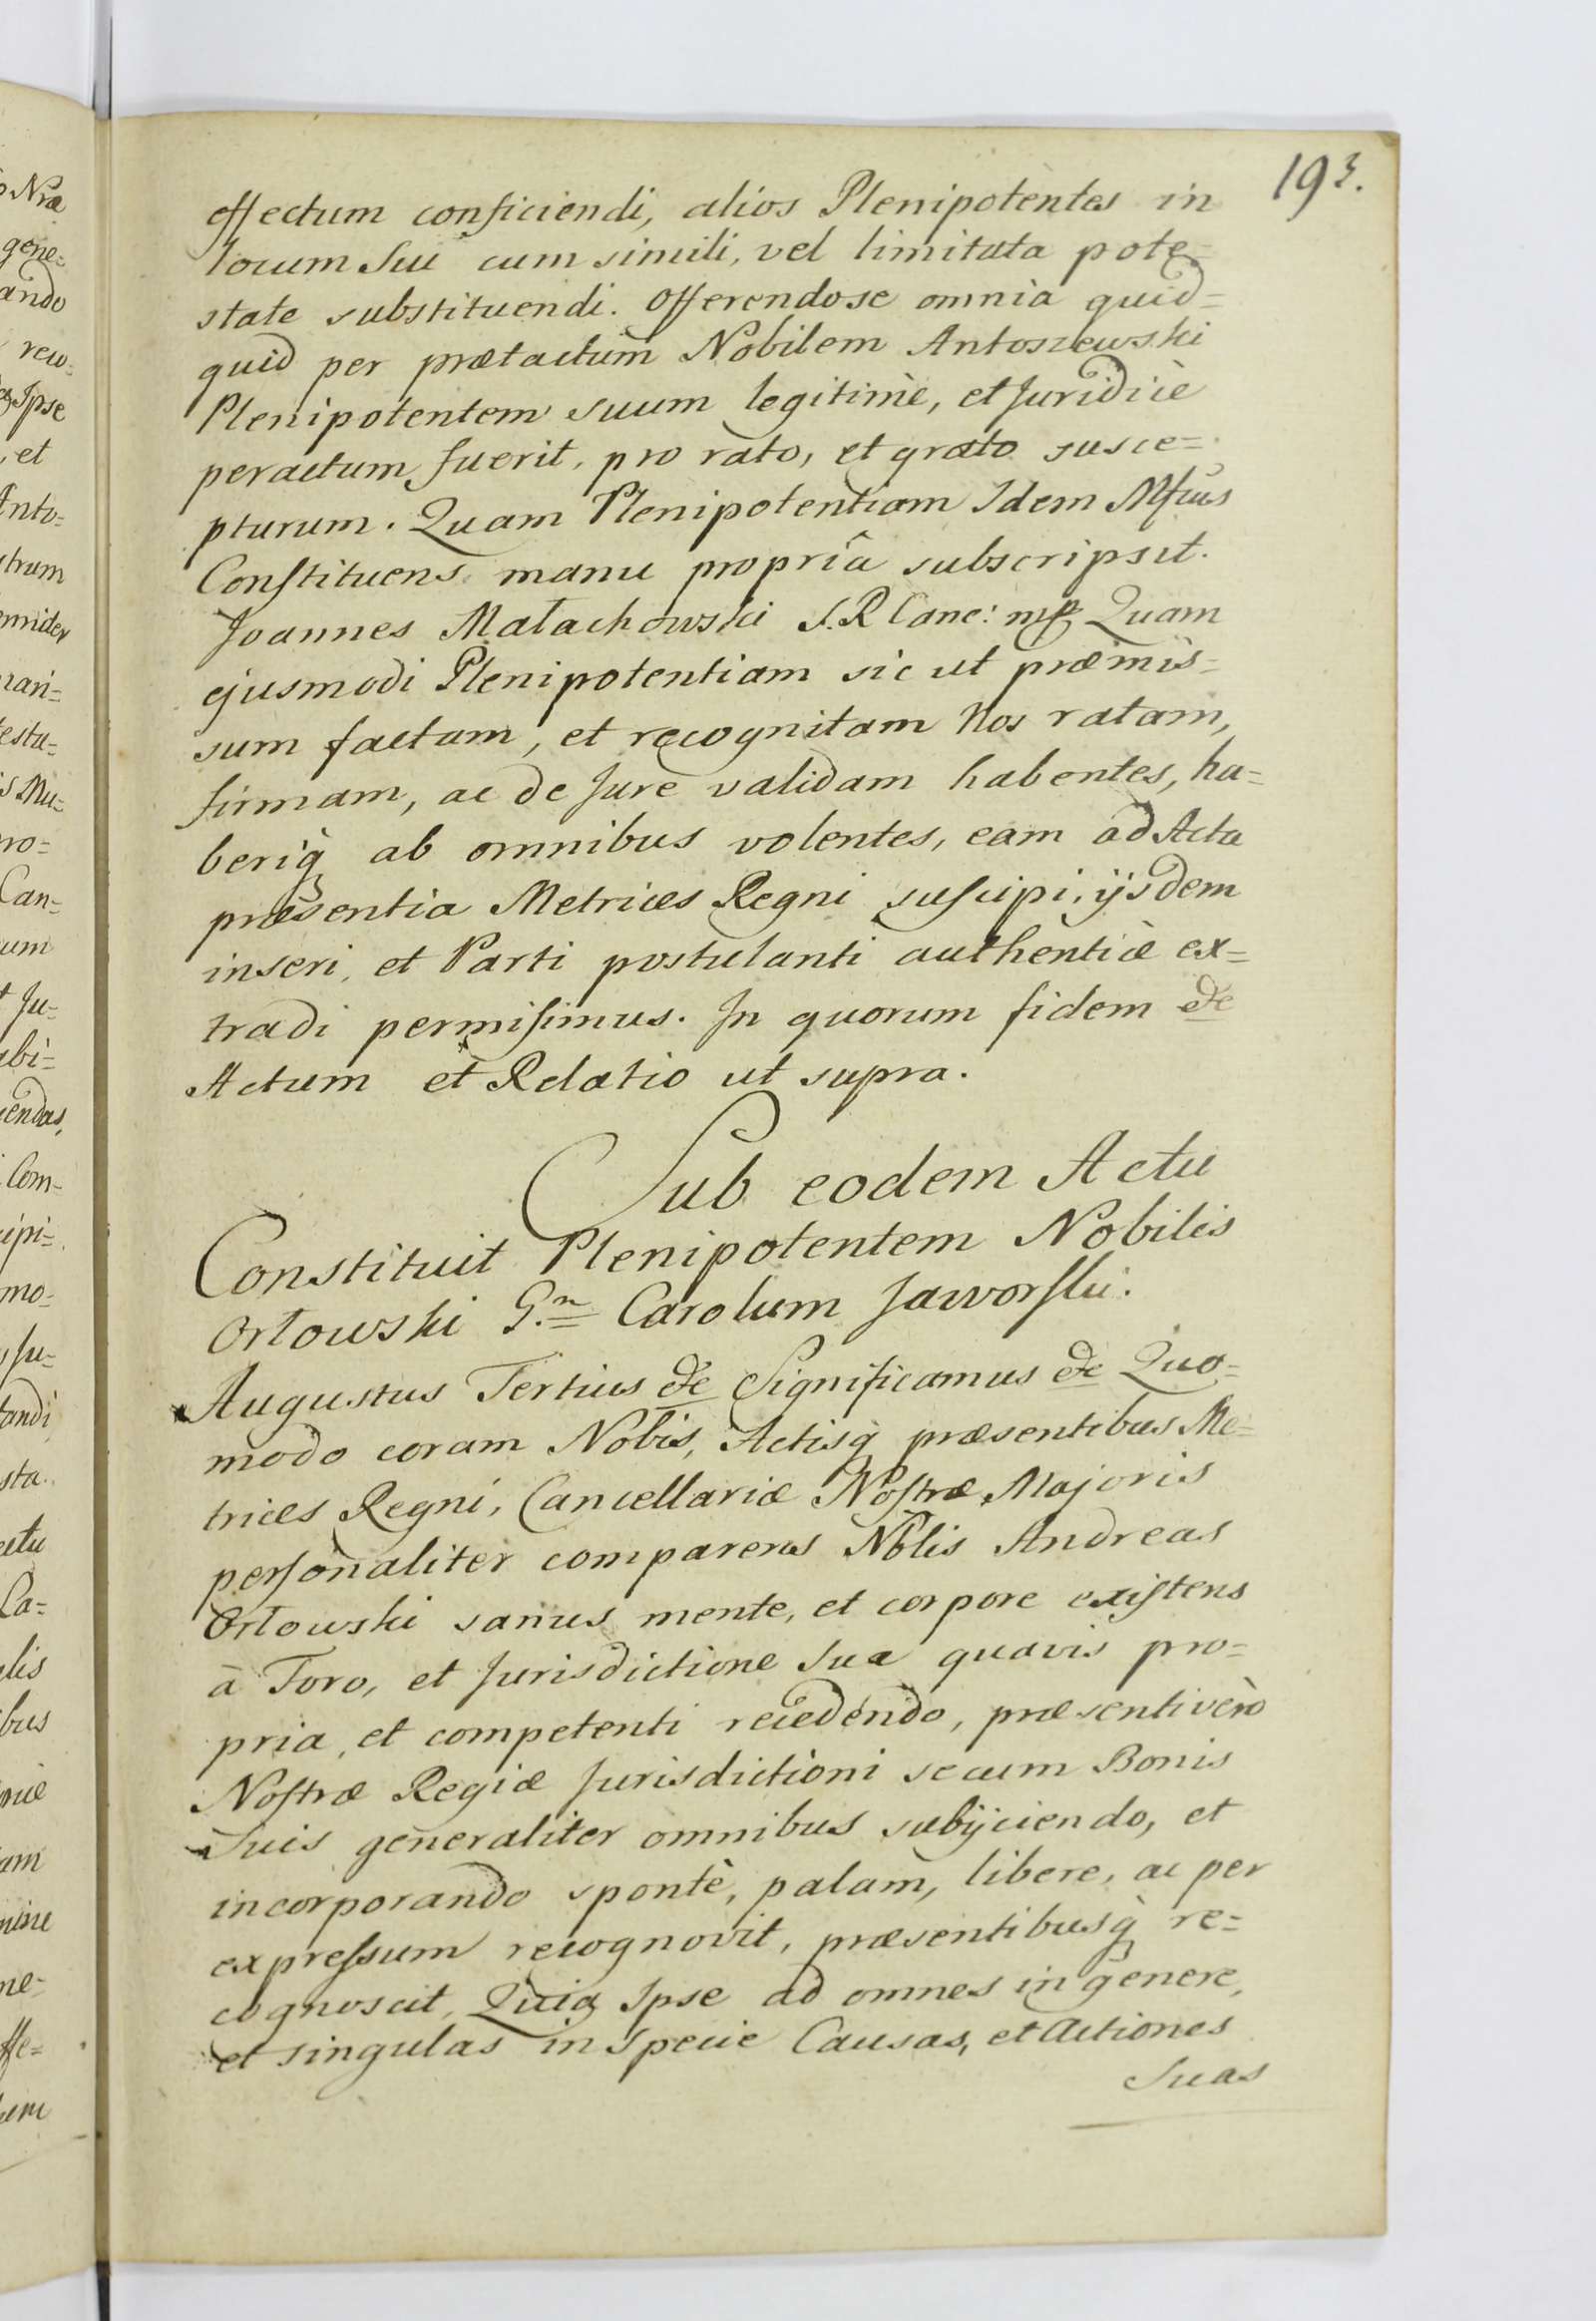 193.
effectum conficiendi, alios Plenipotentes in
locum Sui cum simili, vel limitata pote=
state substituendi. Offerendose omnia quid=
quid per prætactum Nobilem Antoszewski
Plenipotentem suum legitimè, et Juridicè
peractum fuerit, pro rato, et grato susce=
pturum. Quam Plenipotentiam Idem Mfcus
Constituens manu propriâ subscripsit.
Joannes Małachowski S. R Canc: mp Quam
ejusmodi Plenipotentiam sic ut præmis=
sum factam, et recognitam Nos ratam,
firmam, ac de Jure validam habentes, ha=
beriq ab omnibus volentes, eam ad Acta
præsentia Metrices Regni suscipi, ijsdem
inseri, et Parti postulanti authenticè ex=
tradi permisimus. In quorum fidem &c
Actum et Relatio ut supra.
Sub eodem Actu
Constituit Plenipotentem Nobilis
Orłowski G.m Carolum Jaworski.
Augustus Tertius &c Significamus &c Quo=
modo coram Nobis, Actisq præsentibus Me=
trices Regni, Cancellariæ Nostræ Majoris
personaliter comparens Nblis Andreas
Orłowski sanus mente, et corpore existens
à Foro, et Jurisdictione Sua quavis pro=
pria, et competenti recedendo, præsenti verò
Nostræ Regiæ Jurisdictioni se cum Bonis
Suis generaliter omnibus subijciendo, et
incorporando spontè, palam, libere, ac per
expressum recognovit, præsentibusq re=
cognoscit, Quia Ipse ad omnes in genere,
et singulas in Specie Causas, et Actiones
Suas